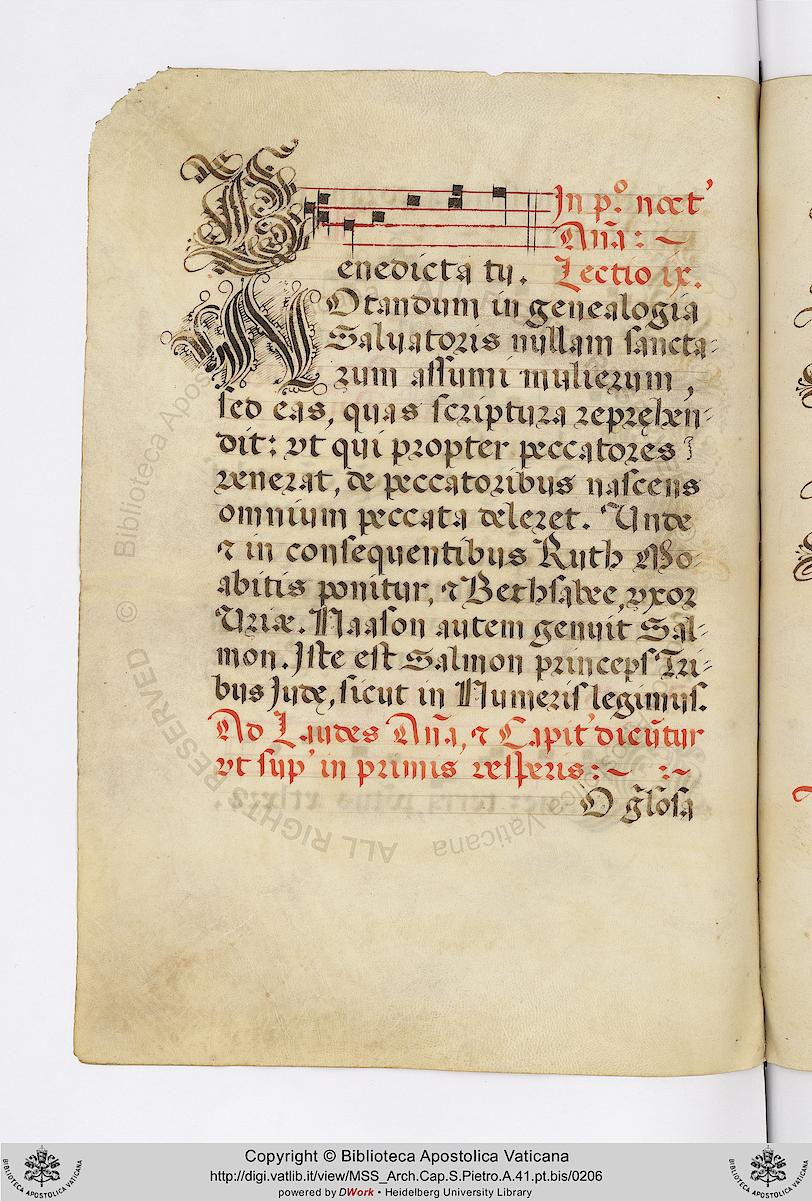 In p.º noct'
Añа: ~
Benedicta tu. Lectio ix.
NOtandum in genealogia
Saluatoris nullam sancta-
rum assumi mulierum,
sed eas, quas scriptura repręhen-
dit: vt qui propter peccatores
venerat, de peccatoribus nascens
omnium peccata deleret. Vnde
⁊ in consequentibus Ruth Mo-
abitis ponitur, ⁊ Bethsabee, vxor
Vriæ. Naason autem genuit Sal-
mon. Iste est Salmon princeps Tri-
bus Iudę, sicut in Numeris legimus.
Ad Laudes Añа, ⁊ Capit' dicũtur
vt sup' in primis vesperis: ~ :~
O gl̃osa
© Biblioteca Apostolica Vaticana
ALL RIGHTS RESERVED
Copyright © Biblioteca Apostolica Vaticana
http://digi.vatlib.it/view/MSS_Arch.Cap.S.Pietro.A.41.pt.bis/0206
powered by DWork • Heidelberg University Library
BIBLIOTECA APOSTOLICA VATICANA
BIBLIOTECA APOSTOLICA VATICANA